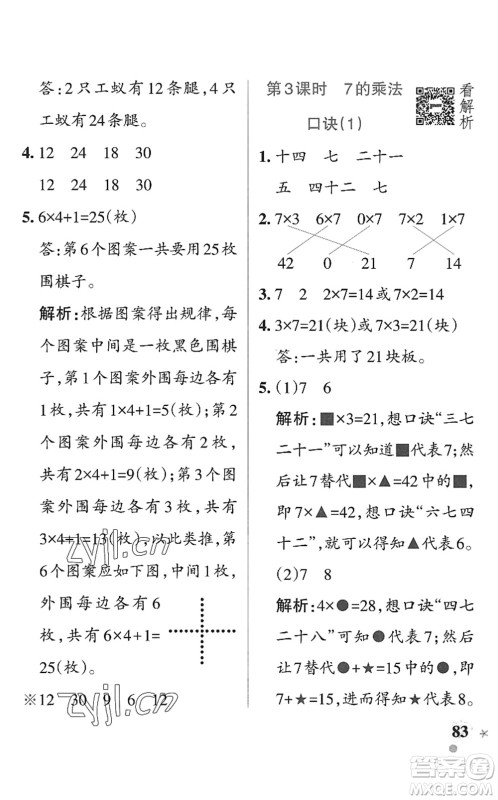 答:2只工蚁有12条腿,4只工
蚁有24条腿。
4. 12 24 18 30
12 24 18 30
5. 6×4+1=25(枚)
答:第6个图案一共要用25枚
围棋子。
解析:根据图案得出规律,每
个图案中间是一枚黑色围棋
子,第1个图案外围每边各有
1枚,共有1×4+1=5(枚);第2
个图案外围每边各有2枚,
共有2×4+1=9(枚);第3个图
案外围每边各有3枚,共有
3×4+1=13(枚)……以此类推,第
6个图案应如下图,中间1枚,
外围每边各有6
枚,共有6×4+1=
25(枚)。
※12 30 9 6 12
第3课时 7的乘法
口诀(1)
看解析
1. 十四 七 二十一
五 四十二 七
2. 7×3 6×7 0×7 7×2 1×7
42 0 21 7 14
3. 7 2 2×7=14 7×2=14
4. 3×7=21(块)或7×3=21(块)
答:一共用了21块板。
5. (1)7 6
解析:■×3=21,想口诀“三七
二十一”可以知道■代表7;然
后让7替代■×▲=42中的■,
即7×▲=42,想口诀“六七四
十二”,就可以得到▲代表6。
(2)7 8
解析:4×●=28,想口诀“四七
二十八”可知●代表7;然后
让7替代●+★=15中的●,即
7+★=15,进而得知★代表8。
83
zyjl.cn
zyjl.cn
答案圈
MXQE.COM